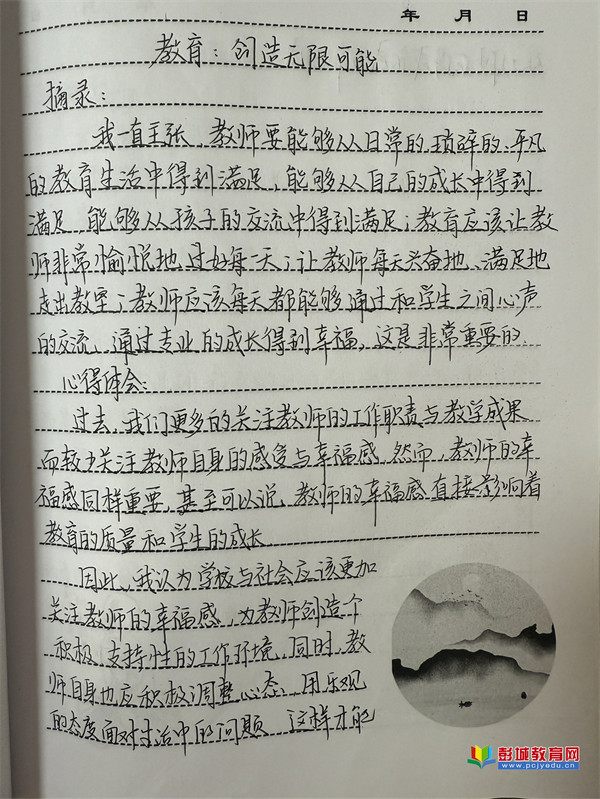 年 月 日
教育：创造无限可能
摘录：
我一直主张，教师要能够从日常的、琐碎的、平凡
的教育生活中得到满足，能够从自己的成长中得到
满足，能够从孩子的交流中得到满足；教育应该让教
师非常愉悦地过好每一天；让教师每天兴奋地、满足地
走出教室；教师应该每天都能够通过和学生之间心声
的交流、通过专业的成长得到幸福，这是非常重要的.
心得体会：
过去，我们更多的关注教师的工作职责与教学成果
而较少关注教师自身的感受与幸福感，然而，教师的幸
福感同样重要，甚至可以说，教师的幸福感直接影响着
教育的质量和学生的成长
因此，我认为学校与社会应该更加
关注教师的幸福感，为教师创造个
积极、支持性的工作环境，同时，教
师自身也应积极调整心态，用乐观
的态度面对生活中的问题，这样才能
彭城教育网
www.pcjyedu.cn